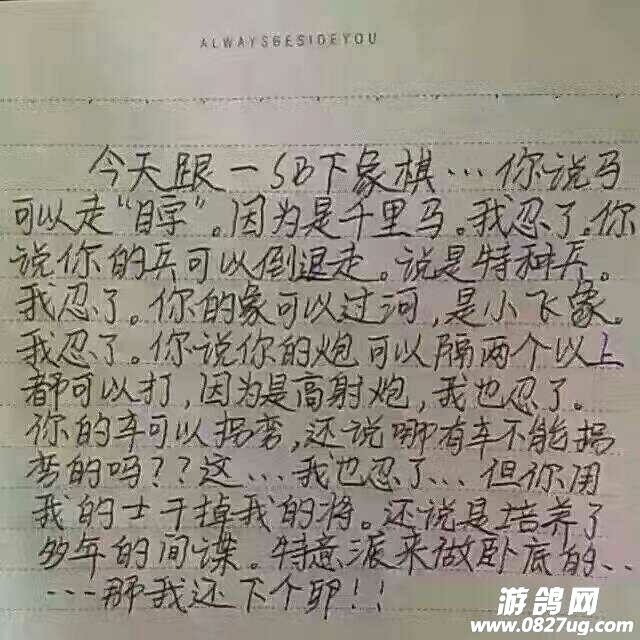 ALWAYSBESIDEYOU
今天跟一SB下象棋…你说马
可以走“目字”。因为是千里马。我忍了。你
说你的兵可以倒退走。说是特种兵。
我忍了。你的象可以过河,是小飞象。
我忍了。你说你的炮可以隔两个以上
都可以打,因为是高射炮,我也忍了。
你的车可以拐弯,还说哪有车不能拐
弯的吗??这…我也忍了…但你用
我的士干掉我的将。还说是培养了
多年的间谍。特意派来做卧底的..
---那我还下个卵!!
游鸽网
www.0827ug.com